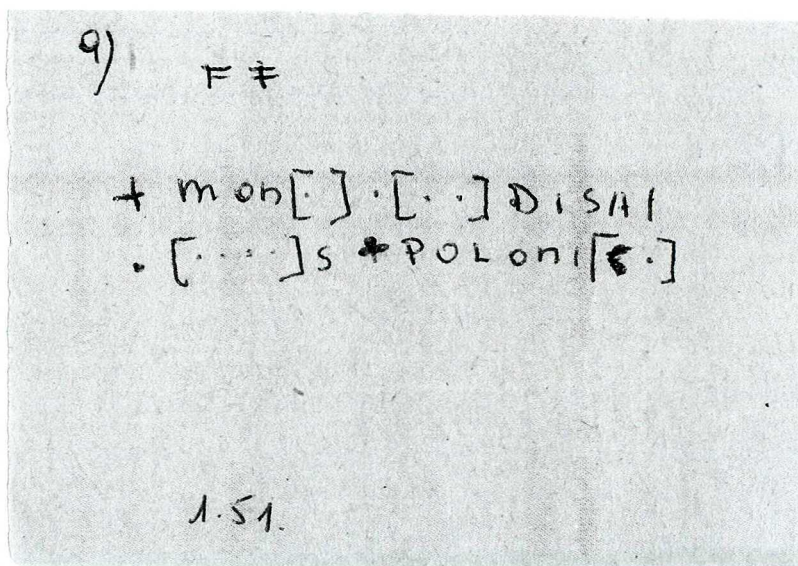 9)
F ‡
+ mon[.] · [. .] DISAI
. [. . . .] S + POLONI[E .]
1.51.